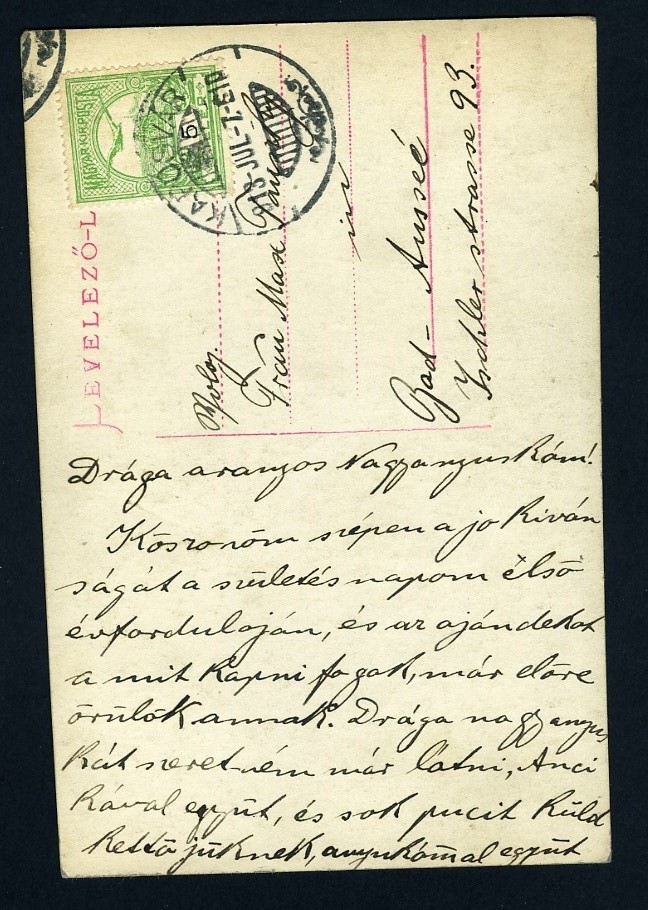 MAGYAR KIR. POSTA
KAPOSVÁR
LEVELEZŐ-L
Frau Max
in
Bad-Aussee
Ischler strasse 93.
Drága aranyos Nagyanyuskám!
Köszönöm szépen a jo kiván
ságát a születés napom első
évforduloján, és az ajándekot
a mit kapni fogok, már előre
örülök annak. Drága nagyanyus
kát szeretném már látni, Anci
kával együt, és sok pucit küld
kettőjüknek, anyukámal együt